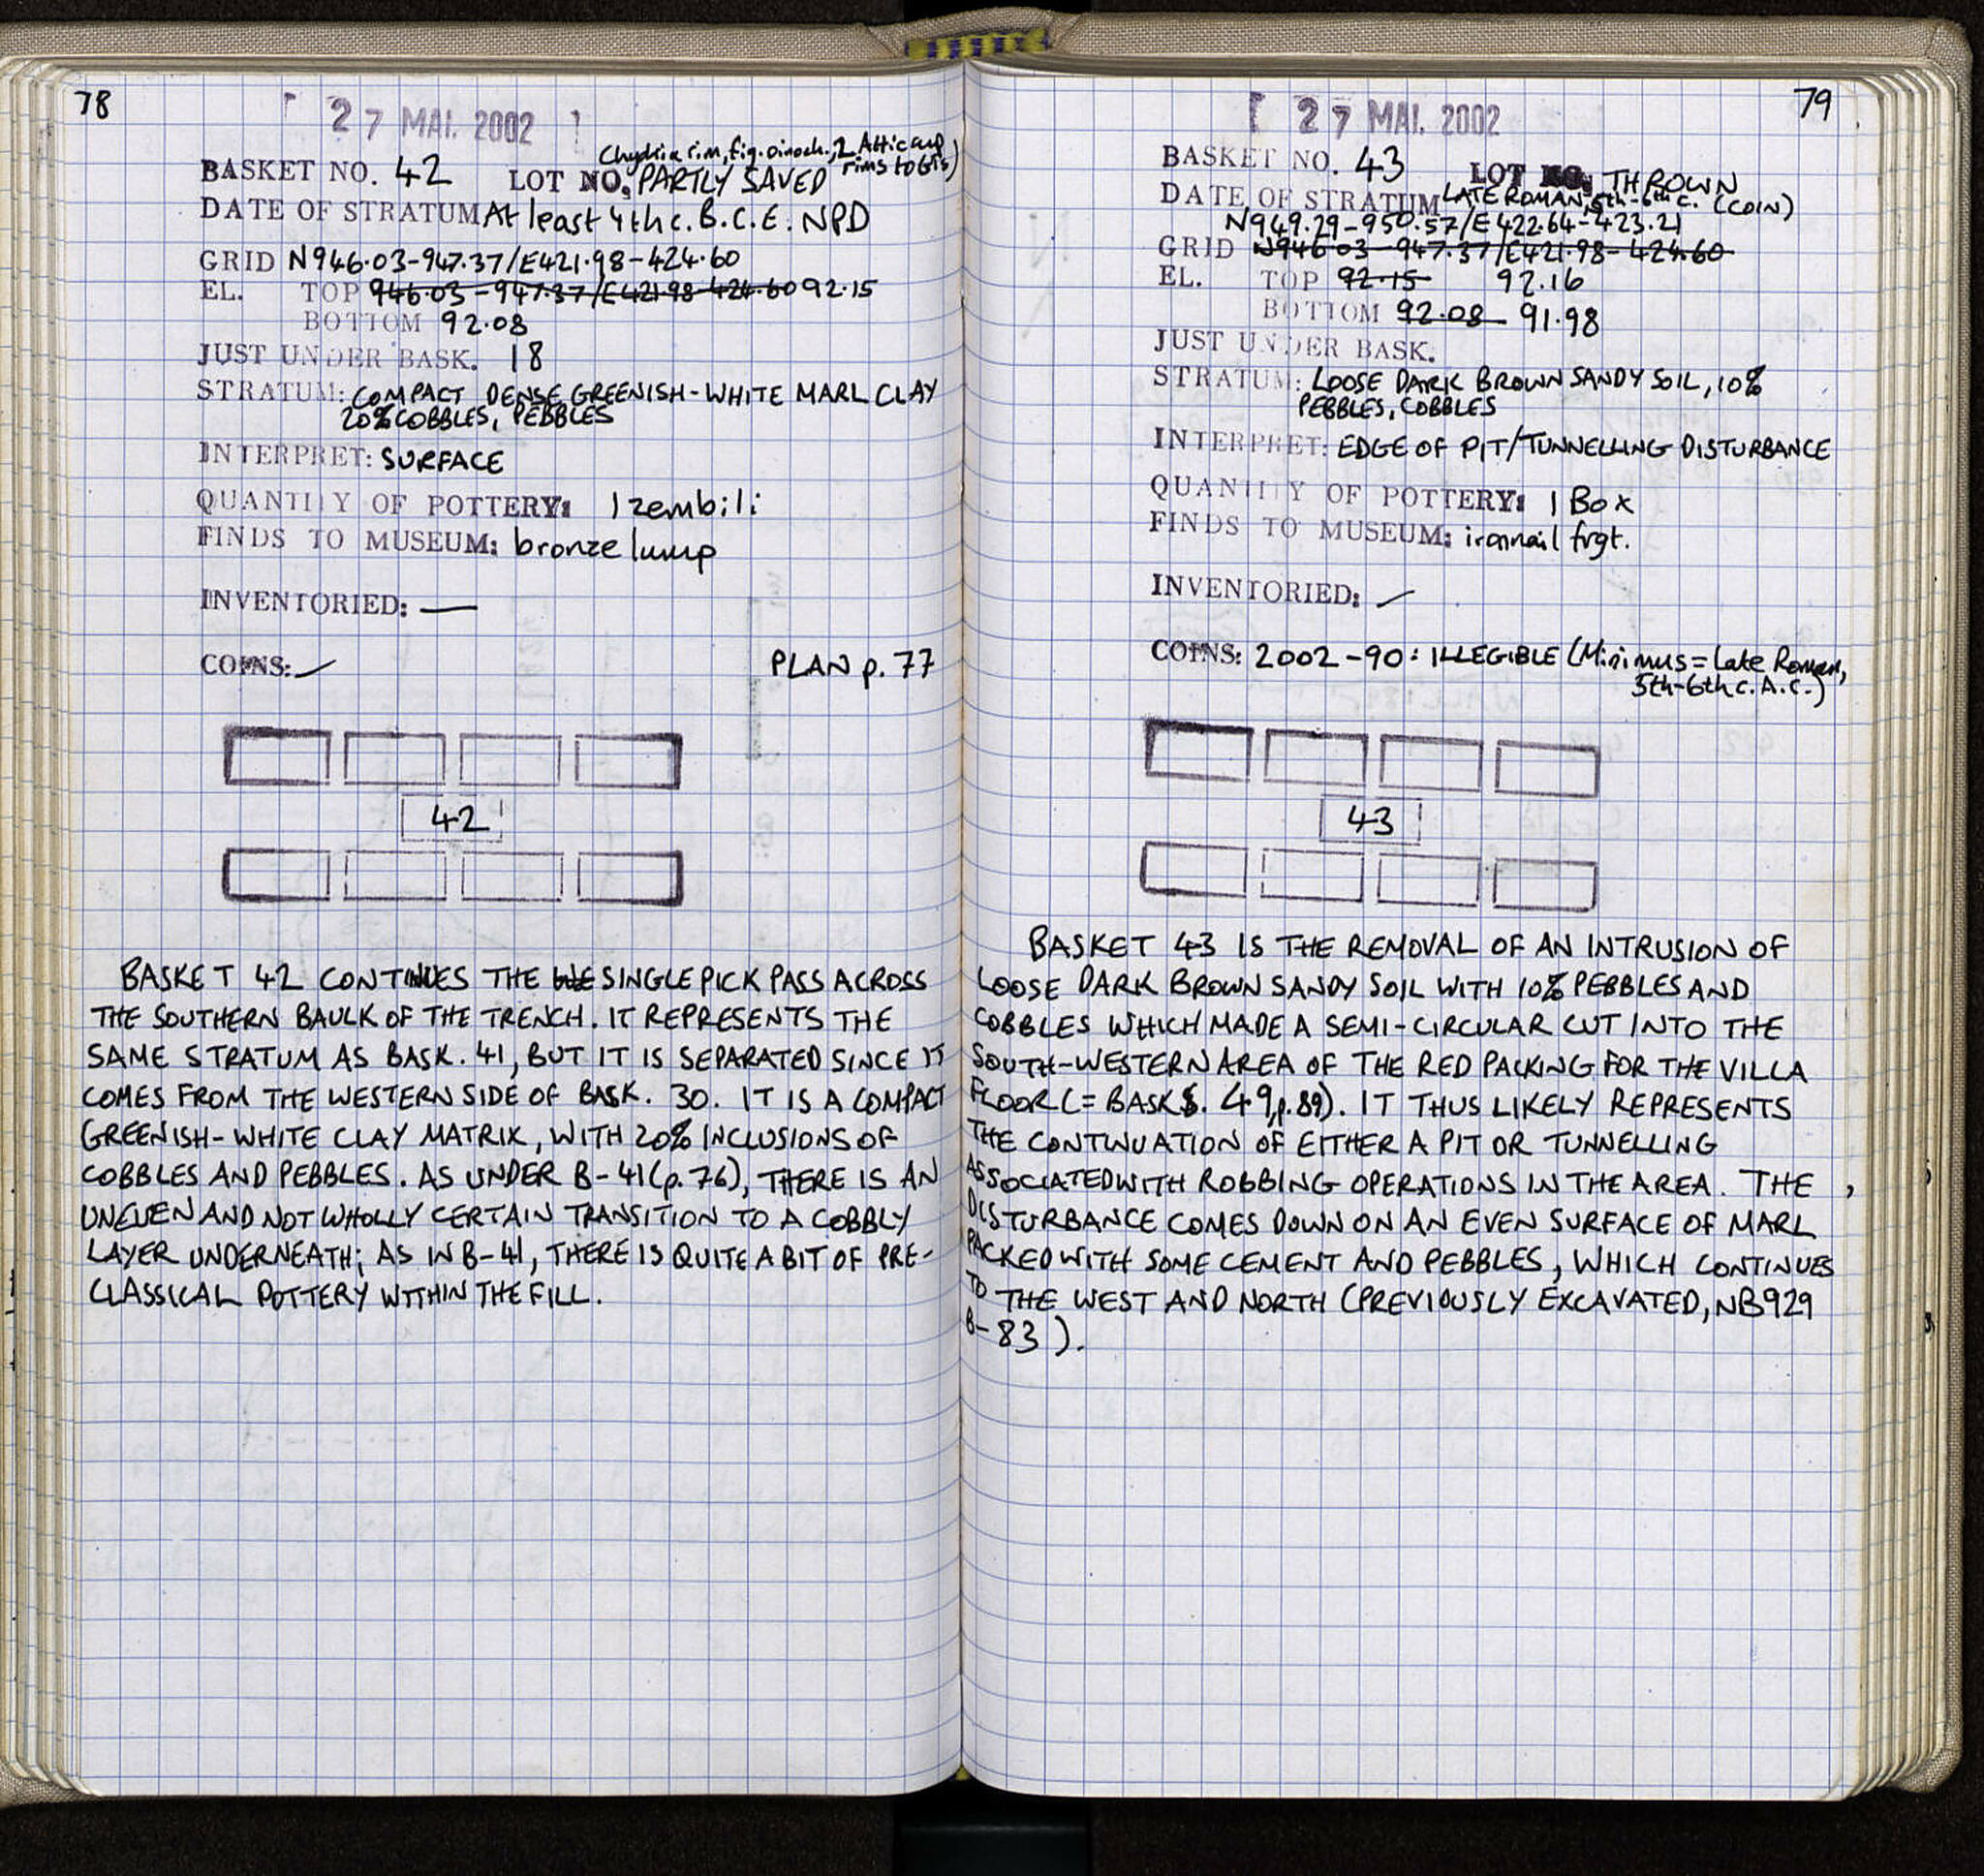 78
27 MAI. 2002
(hydria rim, fig. oinoch., 2 Attic cup
rims to Gls)
BASKET NO. 42 LOT NO. PARTLY SAVED
DATE OF STRATUM At least 4th c. B.C.E. NPD
GRID N946.03-947.37/E421.98-424.60
EL. TOP 946.03-947.37/E421.98-424.60 92.15
BOTTOM 92.08
JUST UNDER BASK. 18
STRATUM: COMPACT DENSE GREENISH-WHITE MARL CLAY
20% COBBLES, PEBBLES
INTERPRET: SURFACE
QUANTITY OF POTTERY: 1 zembili
FINDS TO MUSEUM: bronze lump
INVENTORIED: —
COINS: —
PLAN p. 77
42
BASKET 42 CONTINUES THE SINGLE PICK PASS ACROSS
THE SOUTHERN BAULK OF THE TRENCH. IT REPRESENTS THE
SAME STRATUM AS BASK. 41, BUT IT IS SEPARATED SINCE IT
COMES FROM THE WESTERN SIDE OF BASK. 30. IT IS A COMPACT
GREENISH-WHITE CLAY MATRIX, WITH 20% INCLUSIONS OF
COBBLES AND PEBBLES. AS UNDER B-41 (p. 76), THERE IS AN
UNEVEN AND NOT WHOLLY CERTAIN TRANSITION TO A COBBLY
LAYER UNDERNEATH; AS IN B-41, THERE IS QUITE A BIT OF PRE-
CLASSICAL POTTERY WITHIN THE FILL.
79
27 MAI. 2002
BASKET NO. 43 LOT NO. THROWN
DATE OF STRATUM LATE ROMAN, 5th-6th c. (COIN)
N949.29-950.57/E422.64-423.21
GRID N946.03-947.37/E421.98-424.60
EL. TOP 92.15 92.16
BOTTOM 92.08 91.98
JUST UNDER BASK.
STRATUM: LOOSE DARK BROWN SANDY SOIL, 10%
PEBBLES, COBBLES
INTERPRET: EDGE OF PIT/TUNNELLING DISTURBANCE
QUANTITY OF POTTERY: 1 BOX
FINDS TO MUSEUM: iron nail frgt.
INVENTORIED: —
COINS: 2002-90: ILLEGIBLE (Minimus = Late Roman,
5th-6th c. A.C.)
43
BASKET 43 IS THE REMOVAL OF AN INTRUSION OF
LOOSE DARK BROWN SANDY SOIL WITH 10% PEBBLES AND
COBBLES WHICH MADE A SEMI-CIRCULAR CUT INTO THE
SOUTH-WESTERN AREA OF THE RED PACKING FOR THE VILLA
FLOOR (= BASK. 49, p. 89). IT THUS LIKELY REPRESENTS
THE CONTINUATION OF EITHER A PIT OR TUNNELLING
ASSOCIATED WITH ROBBING OPERATIONS IN THE AREA. THE
DISTURBANCE COMES DOWN ON AN EVEN SURFACE OF MARL
PACKED WITH SOME CEMENT AND PEBBLES, WHICH CONTINUES
TO THE WEST AND NORTH (PREVIOUSLY EXCAVATED, NB929
B-83).